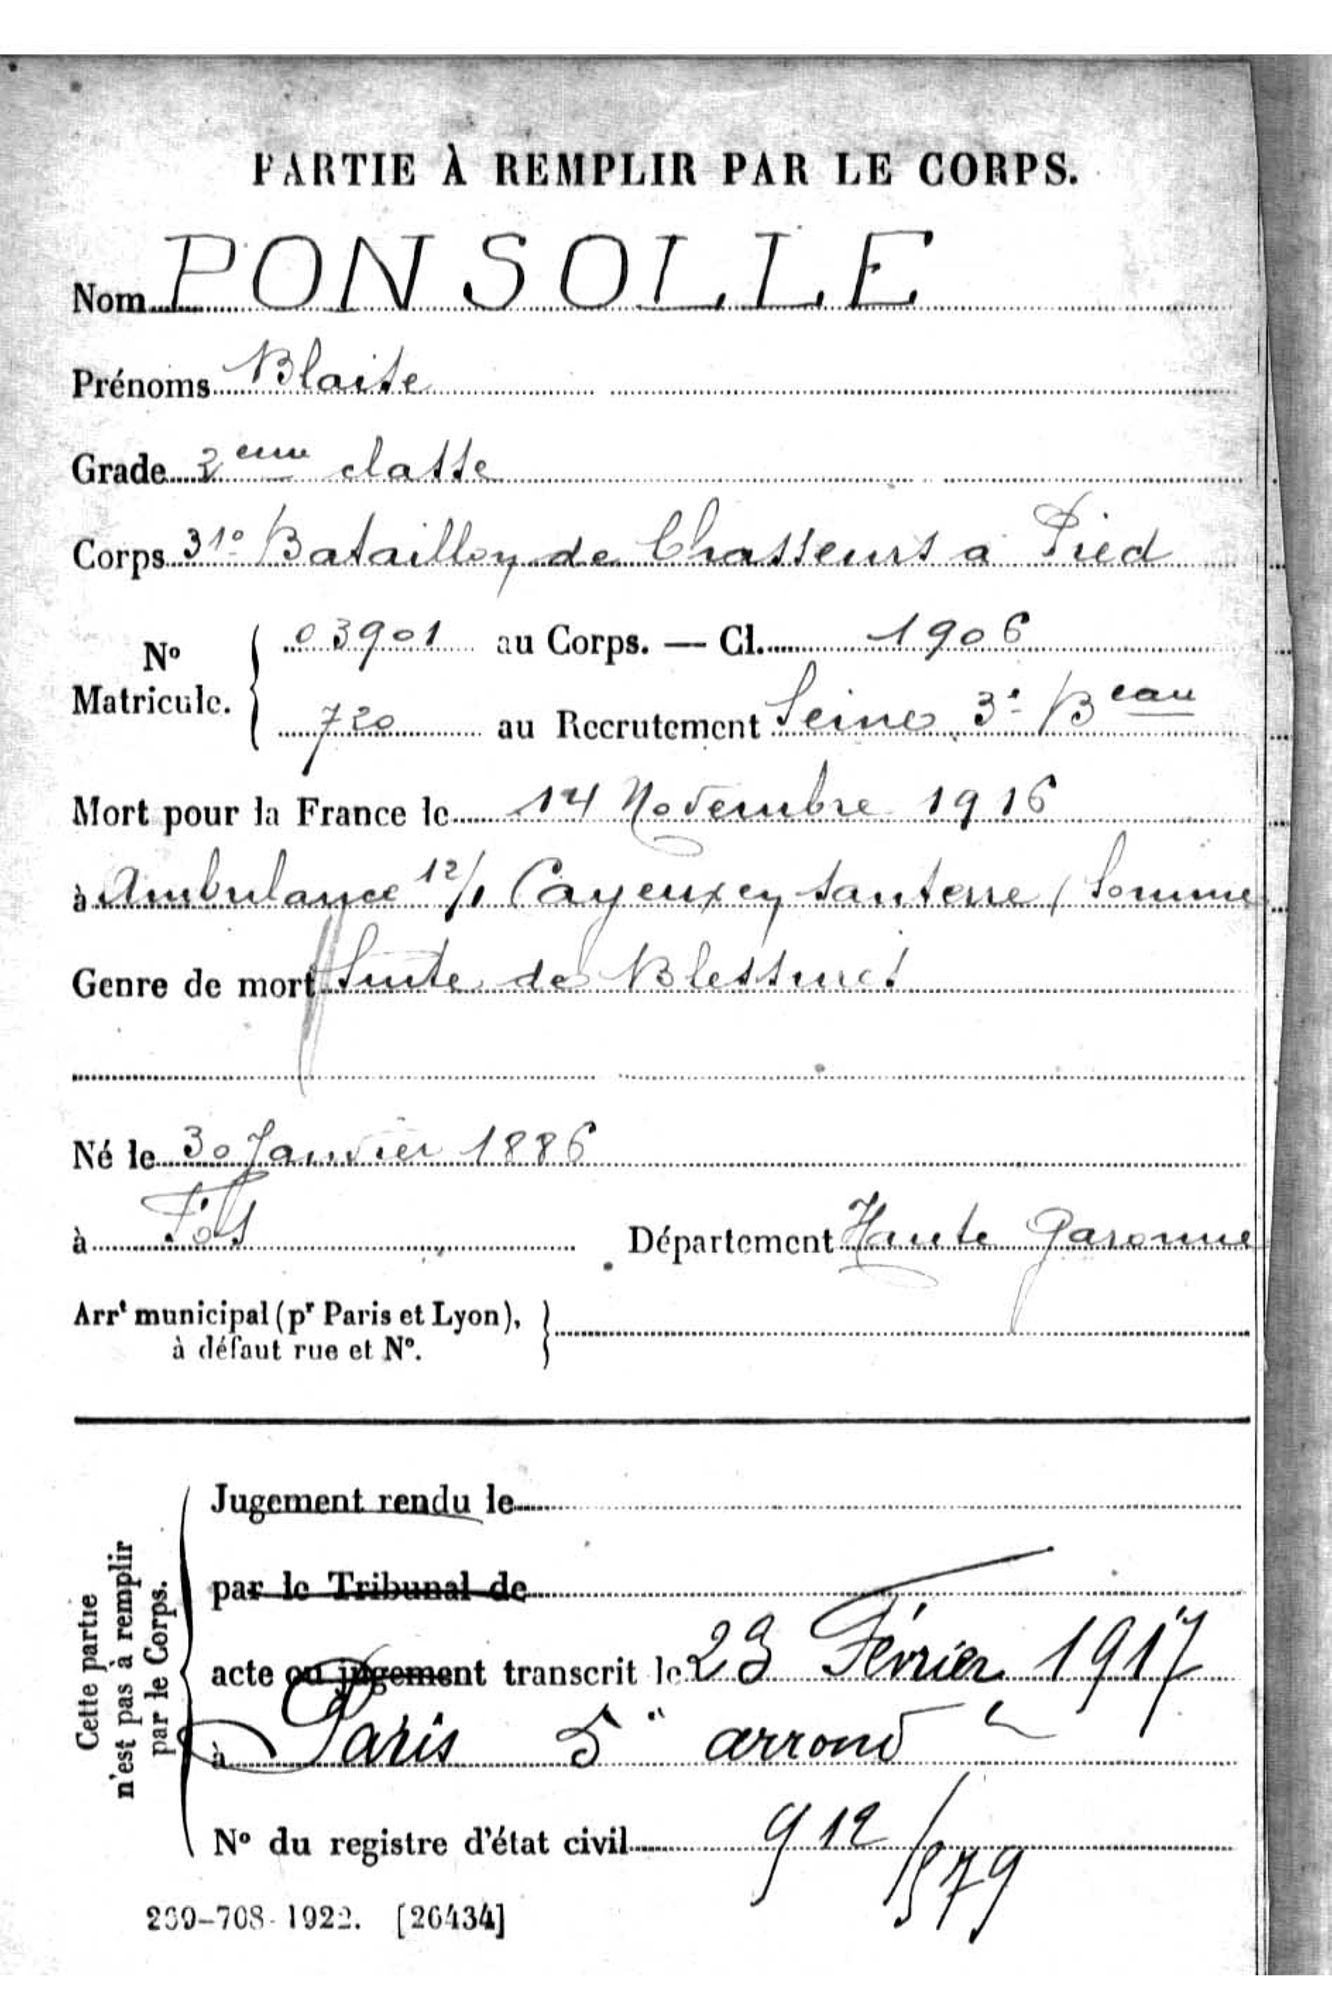 PARTIE À REMPLIR PAR LE CORPS.
Nom PONSOLLE
Prénoms Blaise
Grade 2eme classe
Corps 31e Bataillon de Chasseurs a Pied
No Matricule. { 03901 au Corps. — Cl. 1906
720 au Recrutement Seine 3e Beau
Mort pour la France le 14 Novembre 1916
à Ambulance 12/1 Cayeux en Santerre (Somme
Genre de mort Suite de Blessures
Né le 30 Janvier 1886
à Fos Département Haute Garonne
Arrt municipal (pr Paris et Lyon), }
à défaut rue et No.
Cette partie
n'est pas à remplir
par le Corps.
Jugement rendu le
par le Tribunal de
acte ou jugement transcrit le 23 Février 1917
à Paris 5e arrond
No du registre d'état civil 912/579
269-708-1922. [26434]